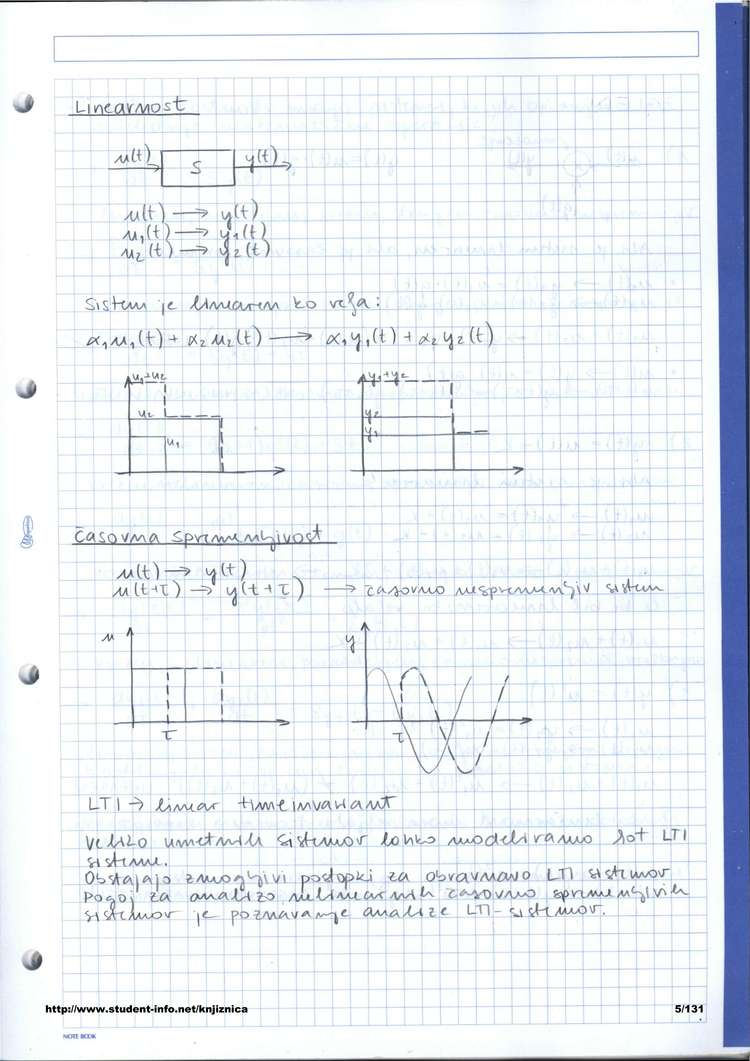 Linearnost
u(t) S y(t)
u(t) → y(t)
u₁(t) → y₁(t)
u₂(t) → y₂(t)
Sistem je linearen ko velja:
α₁u₁(t) + α₂u₂(t) → α₁y₁(t) + α₂y₂(t)
u₁+u₂ y₁+y₂
u₂ y₂
u₁ y₁
časovna spremenljivost
u(t) → y(t)
u(t+τ) → y(t+τ) → časovno nespremenljiv sistem
u y
τ τ
LTI → linear timeinvariant
Veliko umetnih sistemov lahko modeliramo kot LTI
sisteme.
Obstajajo zmogljivi postopki za obravnavo LTI sistemov
Pogoj za analizo nelinearnih časovno spremenljivih
sistemov je poznavanje analize LTI-sistemov.
http://www.student-info.net/knjiznica 5/131
NOTE BOOK